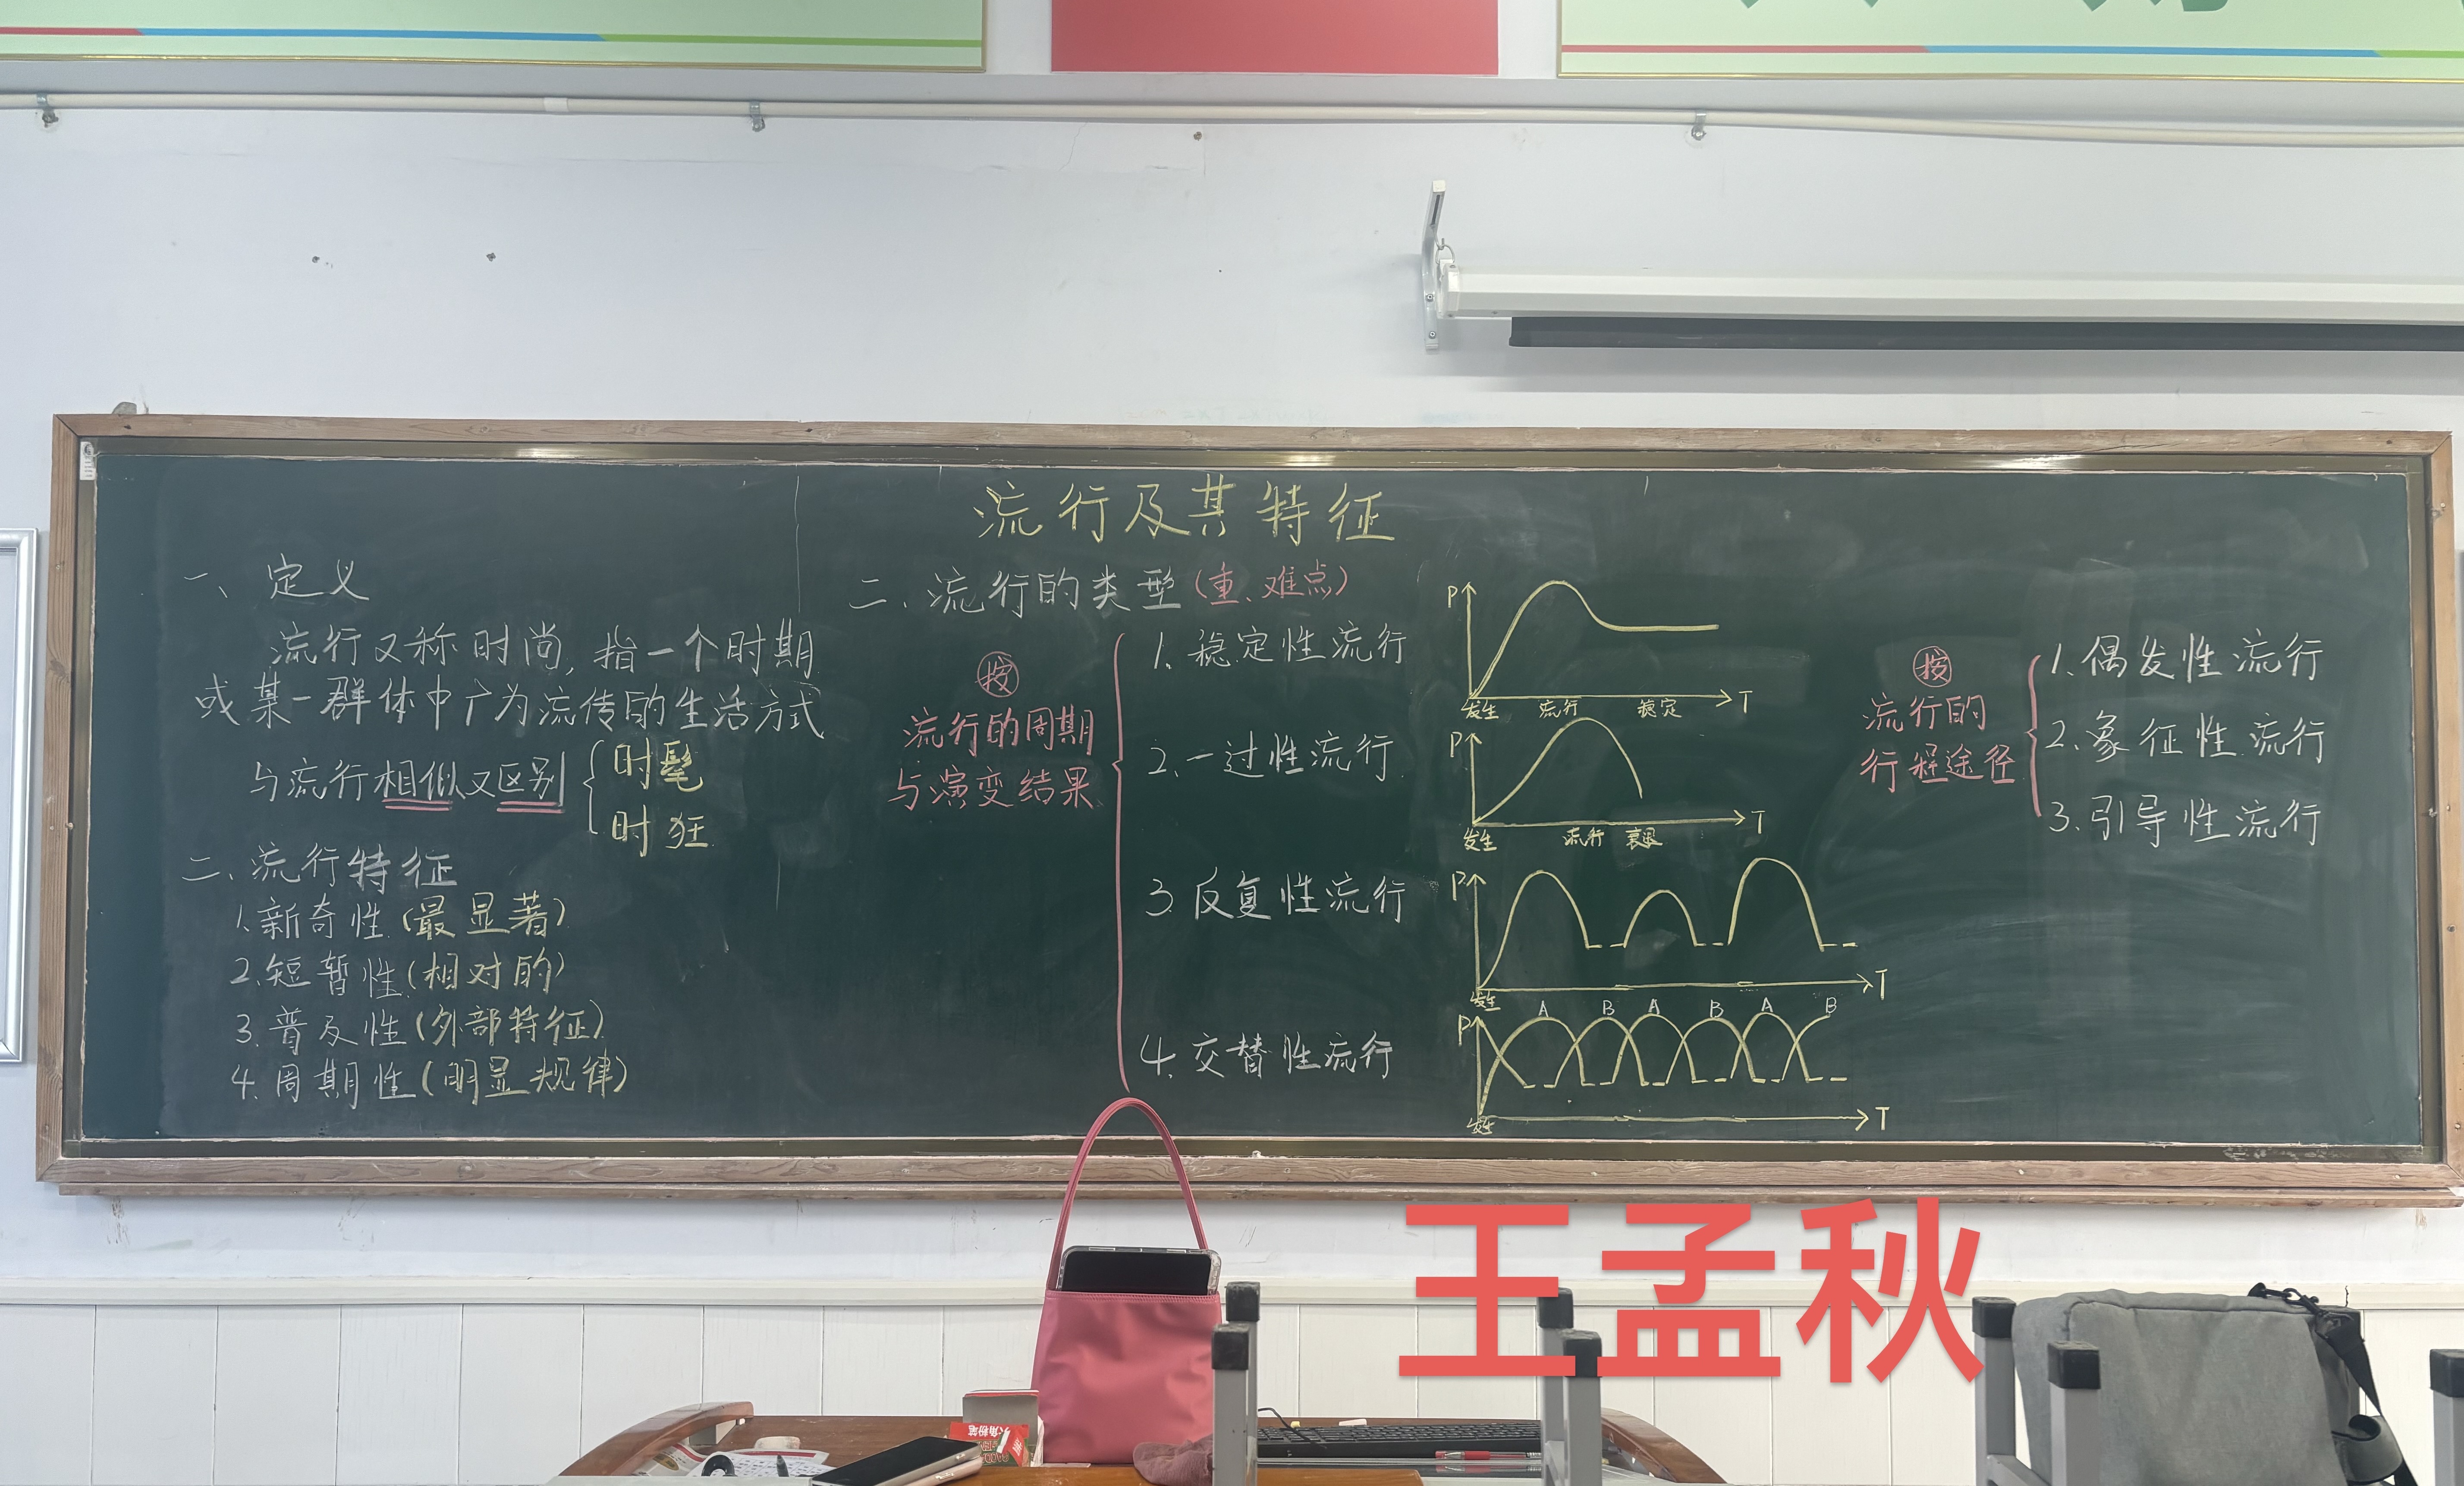 流行及其特征
一、定义
流行又称时尚,指一个时期
或某一群体中广为流传的生活方式
与流行相似又区别
时髦
时狂
二、流行特征
1.新奇性(最显著)
2.短暂性(相对的)
3.普及性(外部特征)
4.周期性(明显规律)
二、流行的类型(重、难点)
按
流行的周期
与演变结果
1、稳定性流行
P
发生 流行 稳定 T
2、一过性流行
P
发生 流行 衰退 T
3.反复性流行
P
发生 T
4.交替性流行
A B A B A B
P
发生 T
按
流行的
行程途径
1.偶发性流行
2.象征性流行
3.引导性流行
王孟秋
六角粉笔